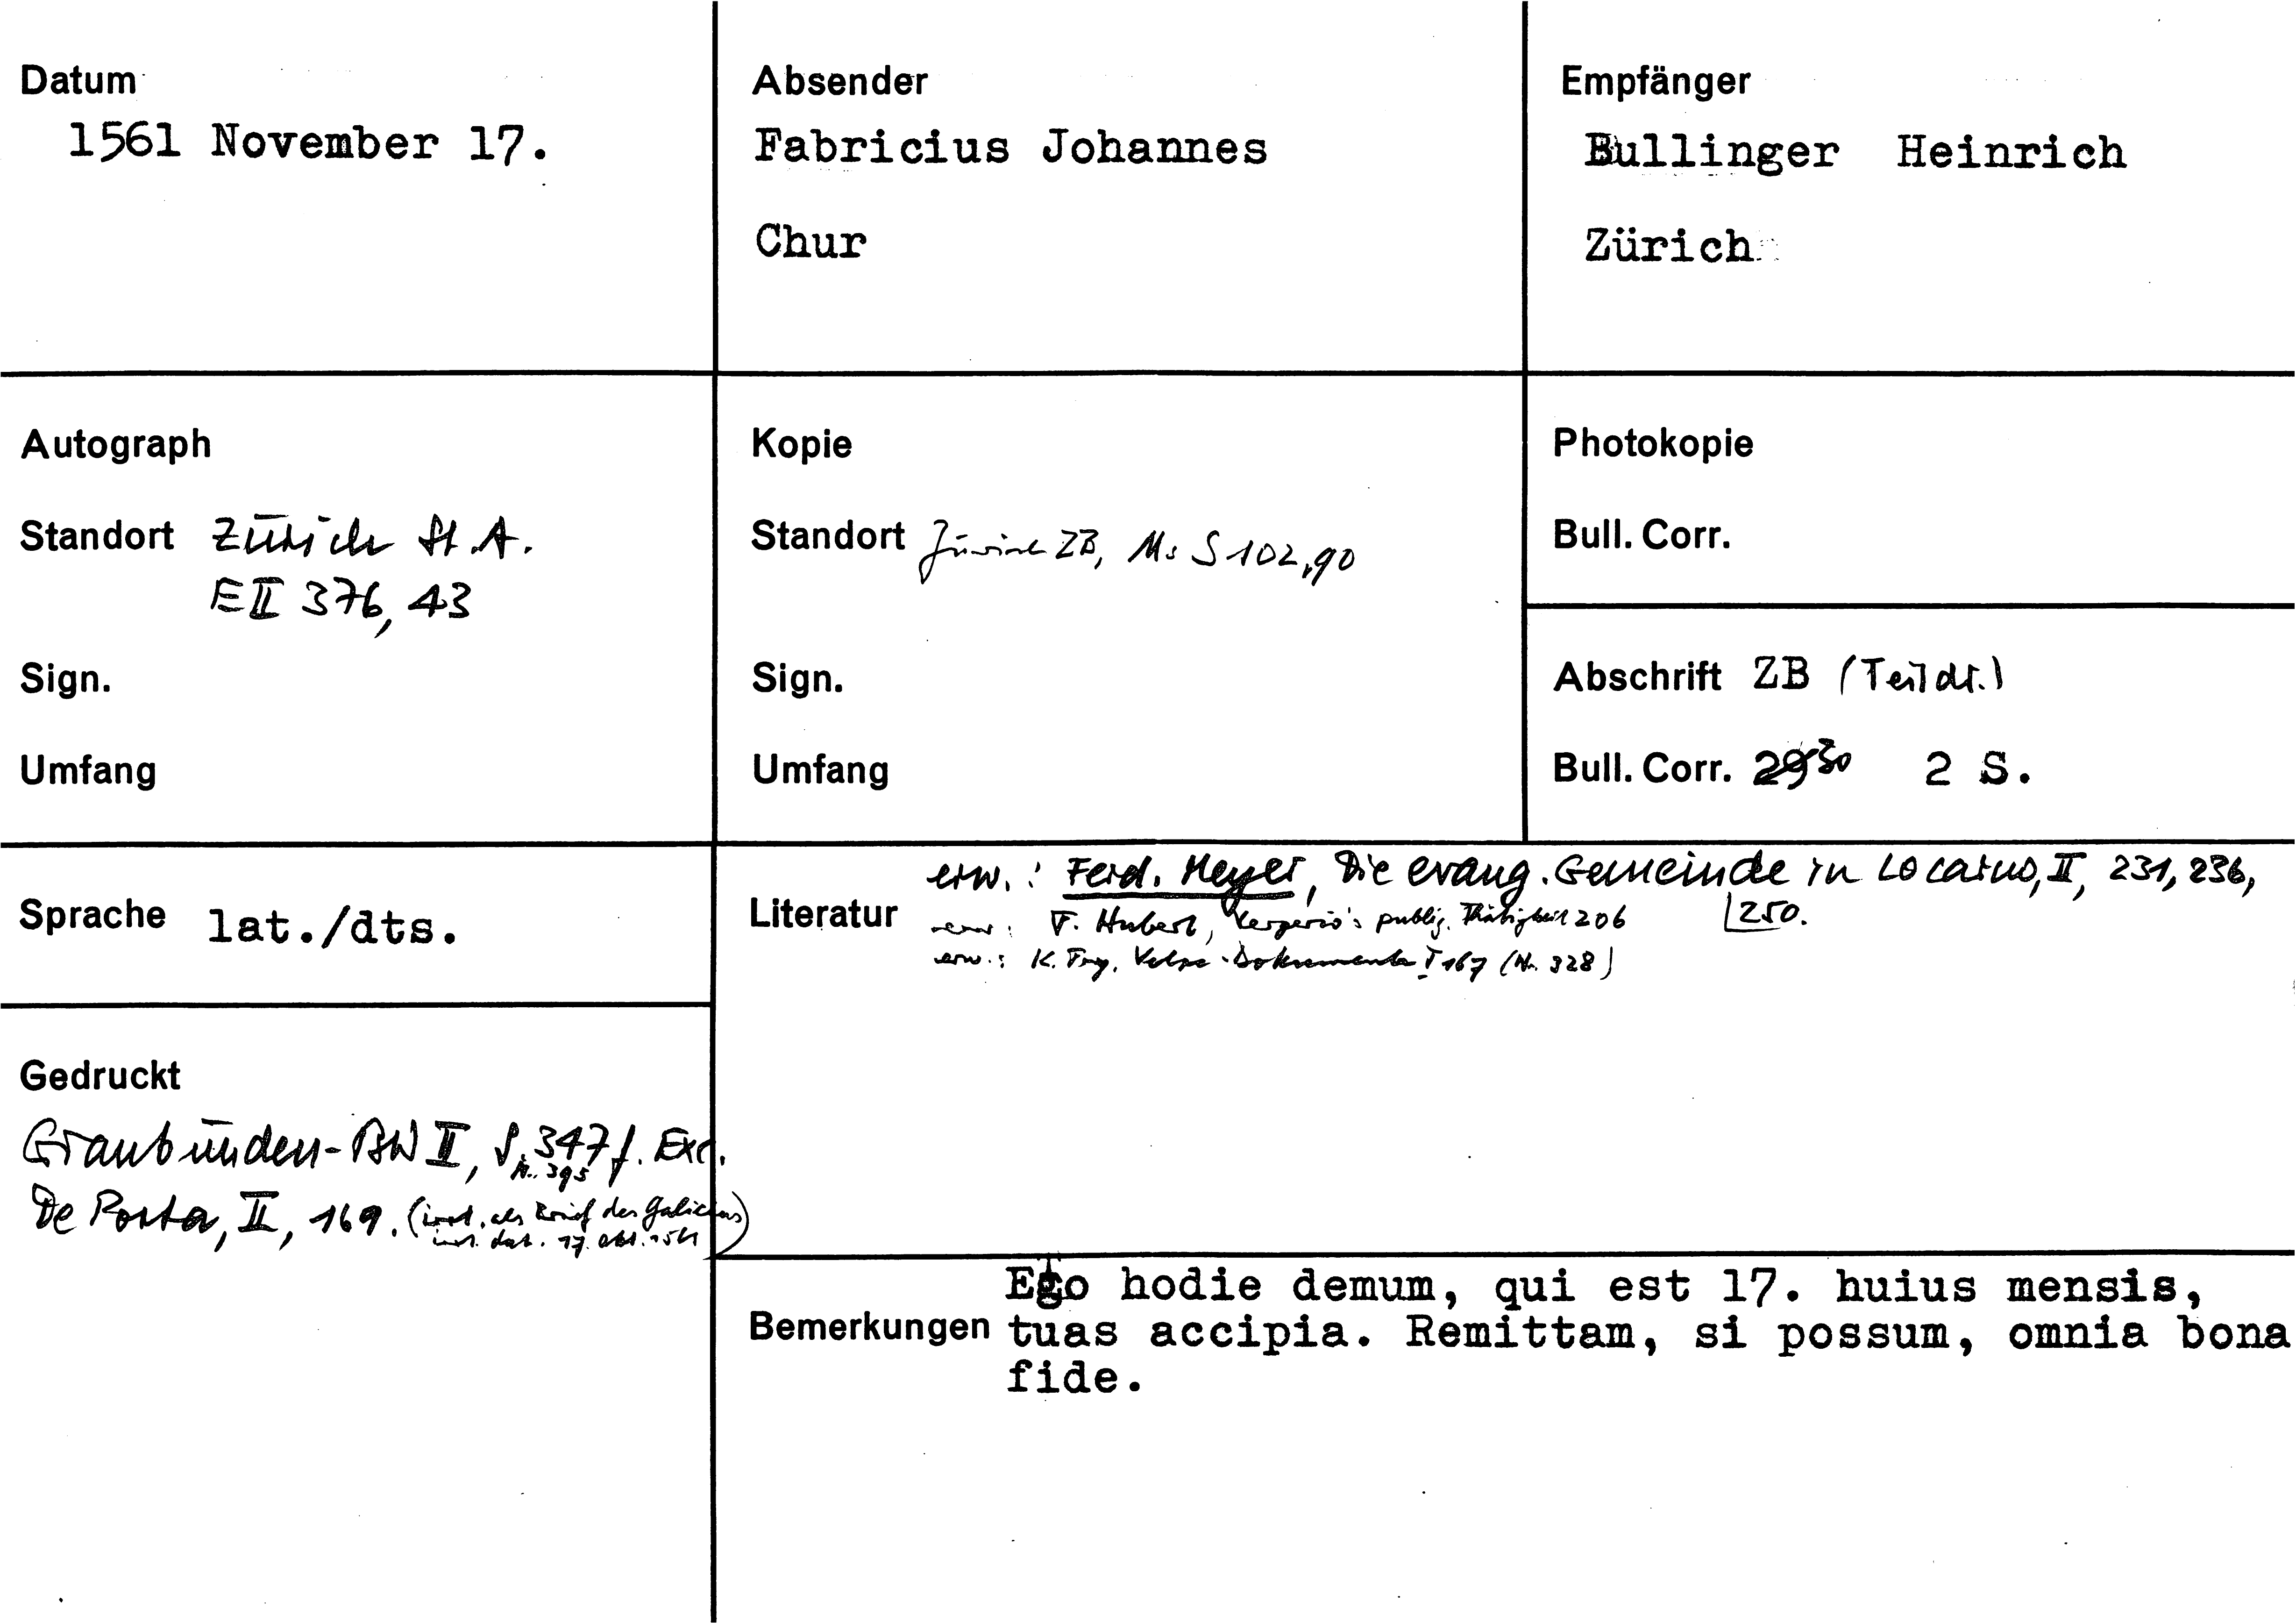 Datum
1561 November 17.
Absender
Fabricius Johannes
Chur
Empfänger
Bullinger Heinrich
Zürich
Autograph
Standort Zürich St.A.
E II 376, 43
Sign.
Umfang
Kopie
Standort Zürich ZB, Ms S 102, 90
Sign.
Umfang
Photokopie
Bull. Corr.
Abschrift ZB (Teildr.)
Bull. Corr. 29 30 2 S.
Sprache lat./dts.
Literatur
erw.: Ferd. Meyer, Die evang. Gemeinde in Locarno, II, 231, 236,
250.
erw.: F. Hubert, Vergerio's publiz. Thätigkeit 206
erw.: K. Fry, Volpe-Dokumente I 167 (Nr. 328)
Gedruckt
Graubünden-BW II, S. 347 f. Exc.
Nr. 395
De Porta, II, 169. (irrt. als Brief des Gallicius)
irrt. dat. 17. Okt. 1561
Bemerkungen
Ego hodie demum, qui est 17. huius mensis,
tuas accipia. Remittam, si possum, omnia bona
fide.